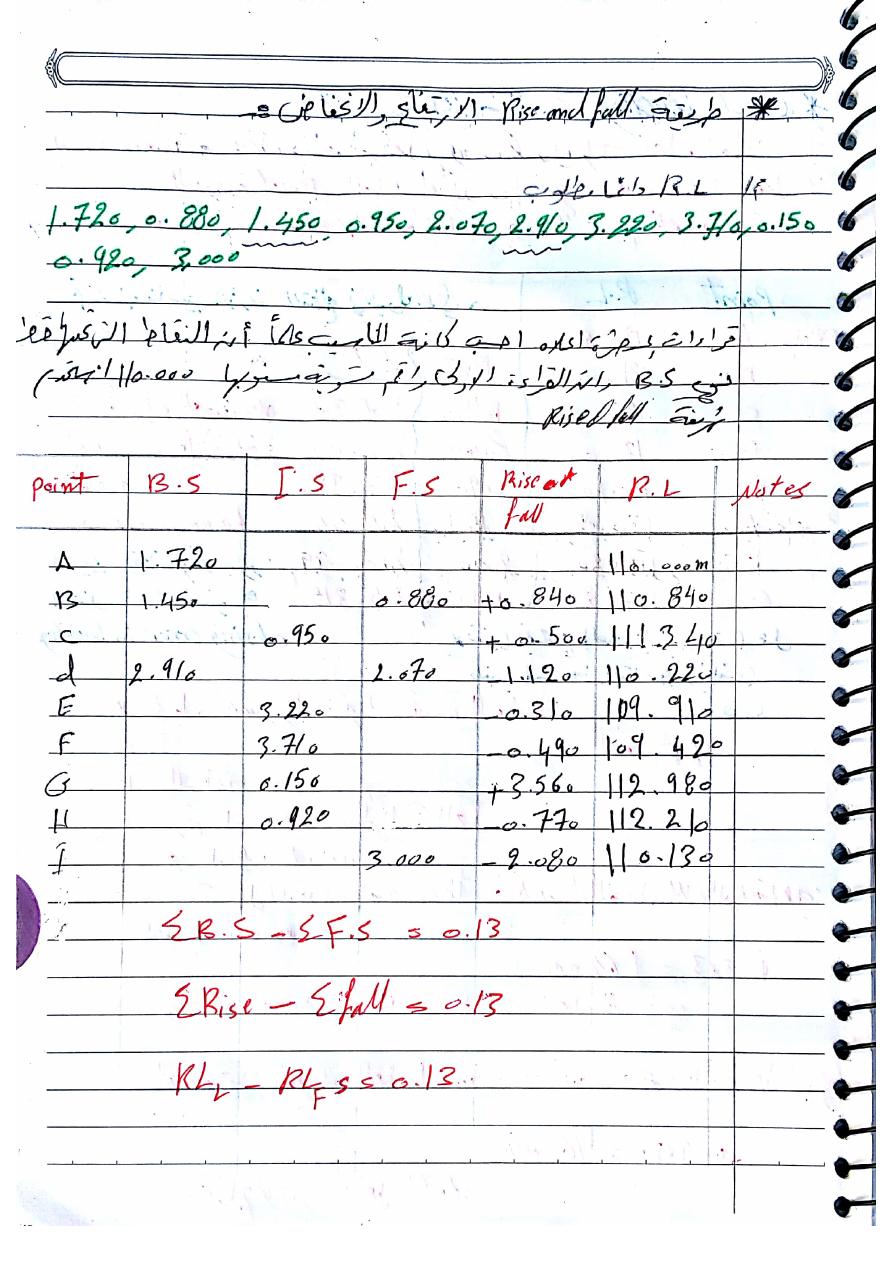 * طريقة Rise and fall الارتفاع والانخفاض :-
R.L دائما مطلوب
1.720, 0.880, 1.450, 0.950, 2.070, 2.910, 3.220, 3.710, 0.150
0.920, 3.000
قراءات اعلاه احسب كافة المناسيب علماً أن النقاط التي تحتها خط
هي B.S وان القراءة الاولى راقم تسوية منسوبها 110.000
Rise & fall
Point B.S I.S F.S Rise or fall R.L Notes
A 1.720 110.000m
B 1.450 0.880 +0.840 110.840
C 0.950 +0.500 111.340
d 2.910 2.070 -1.120 110.220
E 3.220 -0.310 109.910
F 3.710 -0.490 109.420
G 0.150 +3.560 112.980
H 0.920 -0.770 112.210
I 3.000 -2.080 110.130
ΣB.S - ΣF.S = 0.13
ΣRise - Σfall = 0.13
RL_L - RL_F = = 0.13